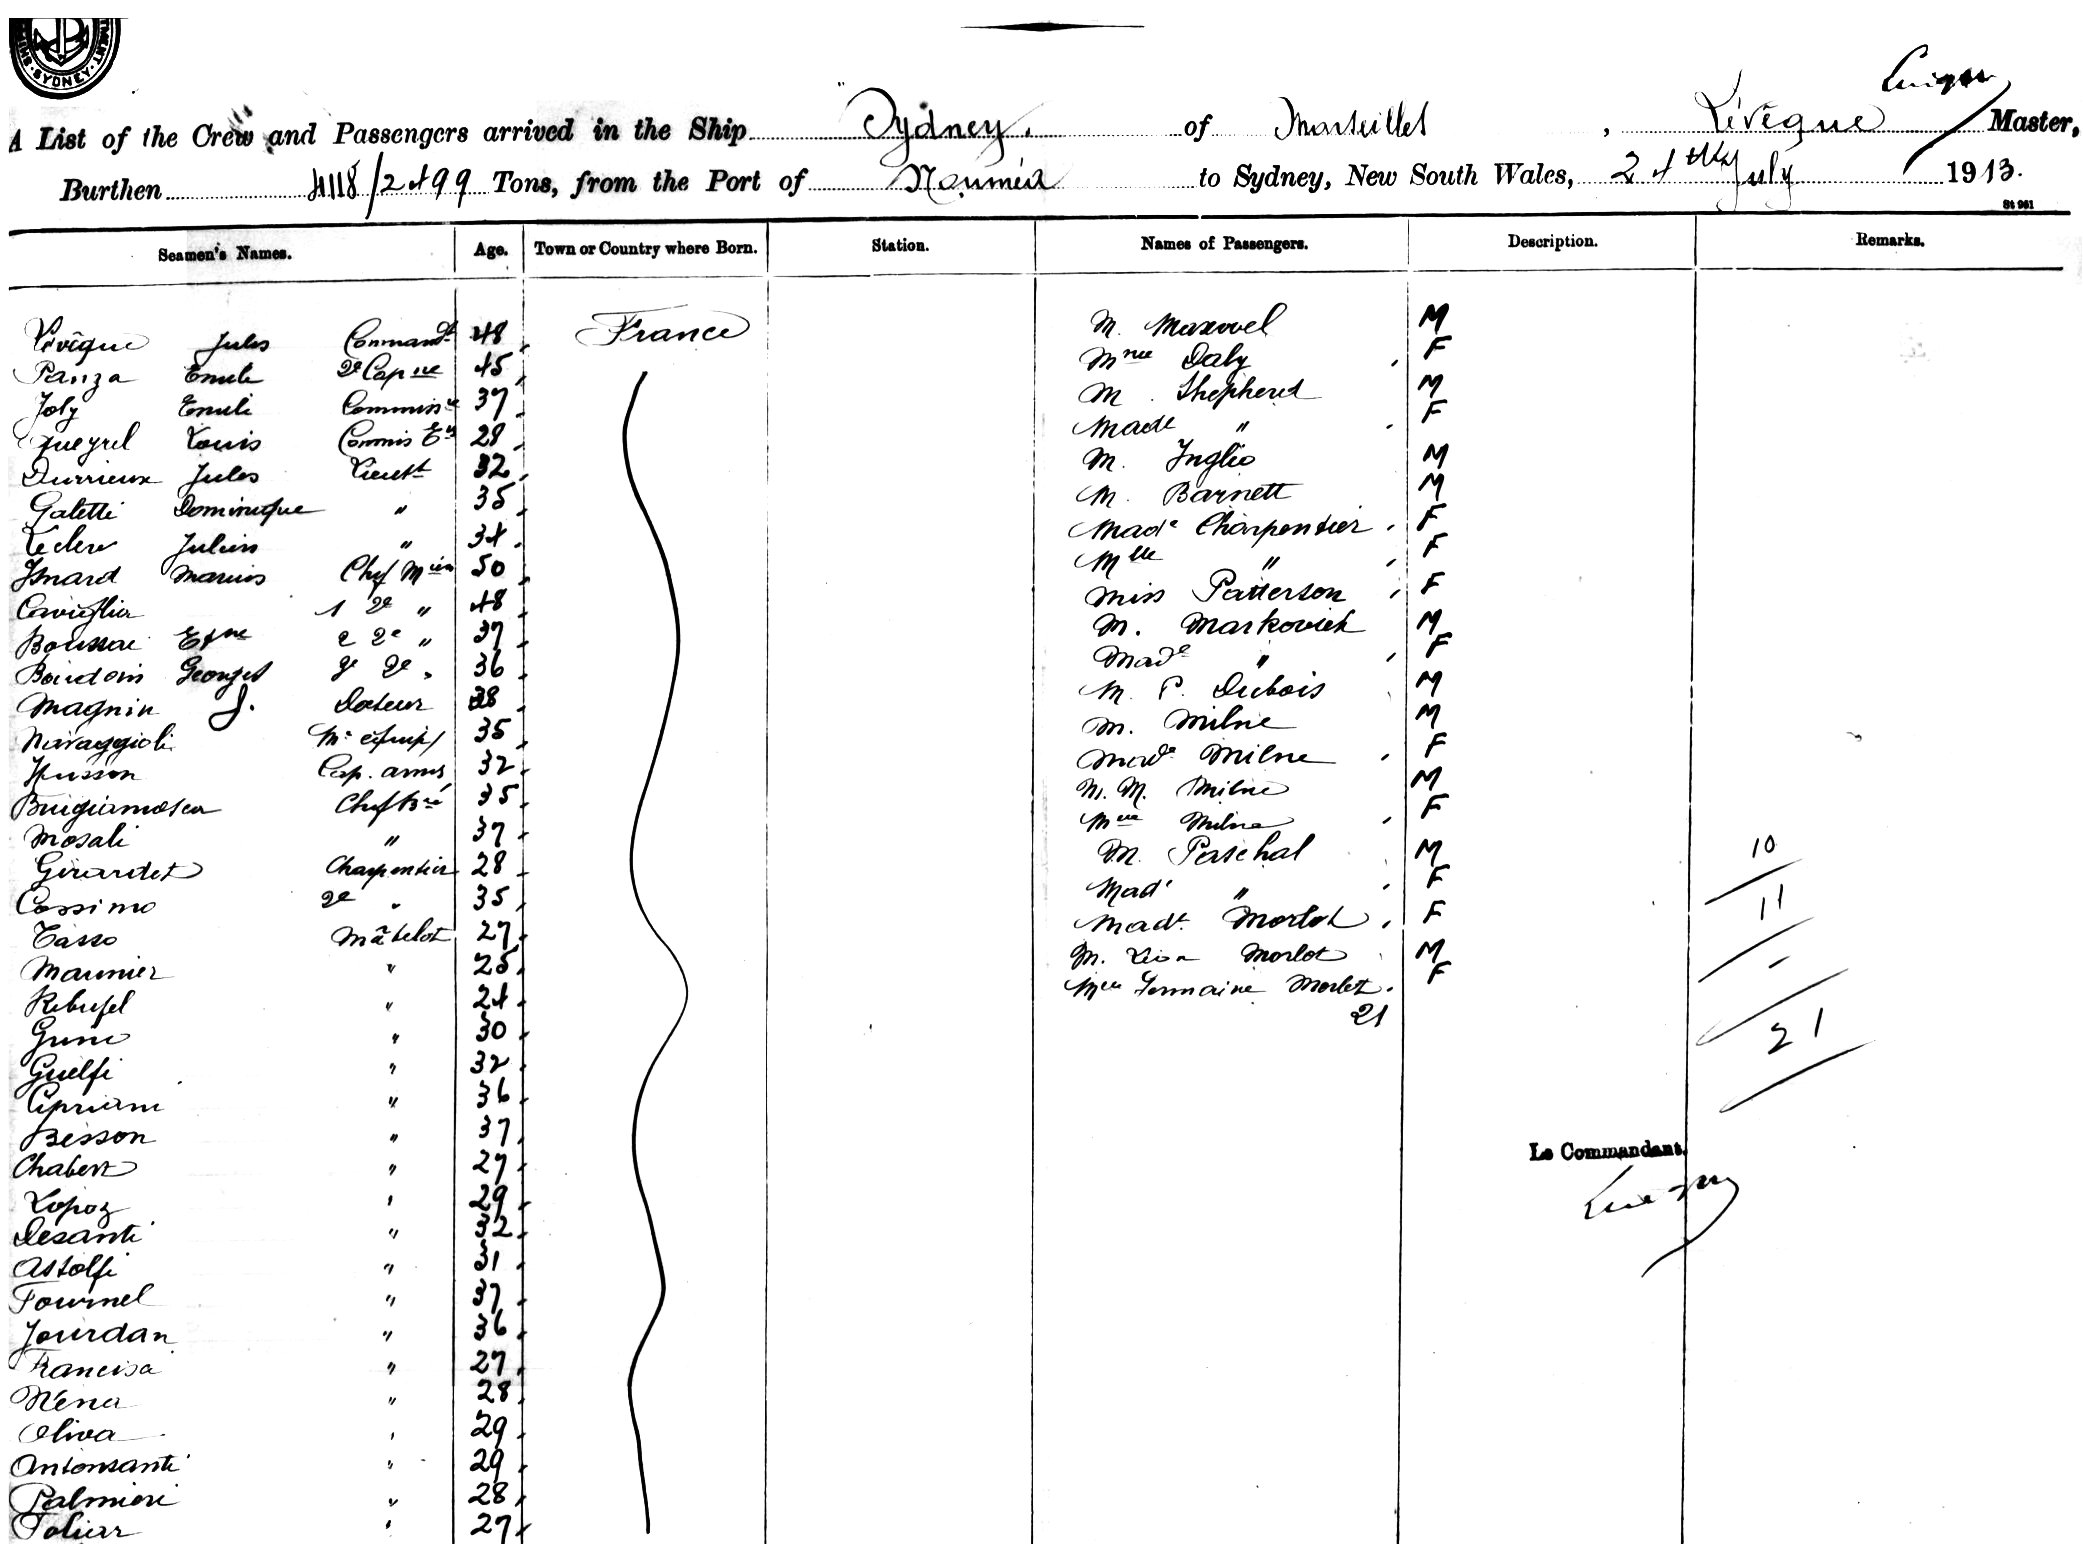 SYDNEY
A List of the Crew and Passengers arrived in the Ship "Sydney. of Marseilles, Lévêque Master,
Burthen 4118/2499 Tons, from the Port of Nouméa to Sydney, New South Wales, 24th July 1913.
St 961
Seamen's Names. Age. Town or Country where Born. Station. Names of Passengers. Description. Remarks.
Lévêque Jules Command^t 48 France
Panza Emile 2e Cap^ne 45
Joly Emile Commiss^re 37
Queyrel Louis Commis 28
Durrieux Jules Lieut^t 32
Galetti Dominique " 35
Leclerc Julien " 34
Isnard Marius Chef M^ien 50
Caviglia 1 2e " 48
Boussac 2 2e " 37
Georges 2e " 36
Magnin J. Docteur 38
Navaggioli M^e équip^ 35
Husson Cap. armes 32
Chef 35
Mosali " 37
Girardet Charpentier 28
Cossimo 2e " 35
Tasso Mâtelot 27
Maunier " 25
Rebufel " 24
" 30
Guelfi " 32
Cipriani " 36
Besson " 37
Chabert " 27
Lopoz " 29
Desanti " 32
Astolfi " 31
Fournel " 37
Jourdan " 36
" 27
Néna " 28
Oliva " 29
Antonsanti " 29
Palmieri " 28
27
M. Maxwel M
Mme Daly F
M. Shepherd M
Made " F
M. Inglis M
M. Barnett M
Made Charpentier F
Mlle " F
Miss Patterson F
M. Markovich M
Made " F
M. P. Dubois M
M. Milne M
Made Milne F
M. M. Milne M
Milne F
M. Paschal M
Made " F
Made Morlot F
M. Morlot M
Germaine Morlot F
21
10
11
-
21
Le Commandant,